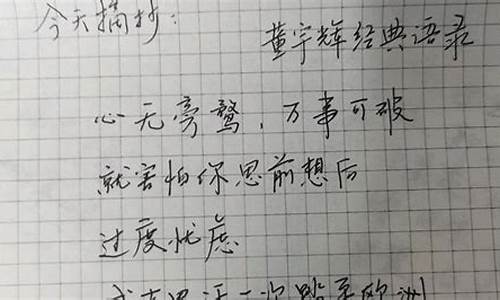 今天摘抄：
董宇辉经典语录
心无旁鹜，万事可破
就害怕你思前想后
过度忧虑
一次
欧洲